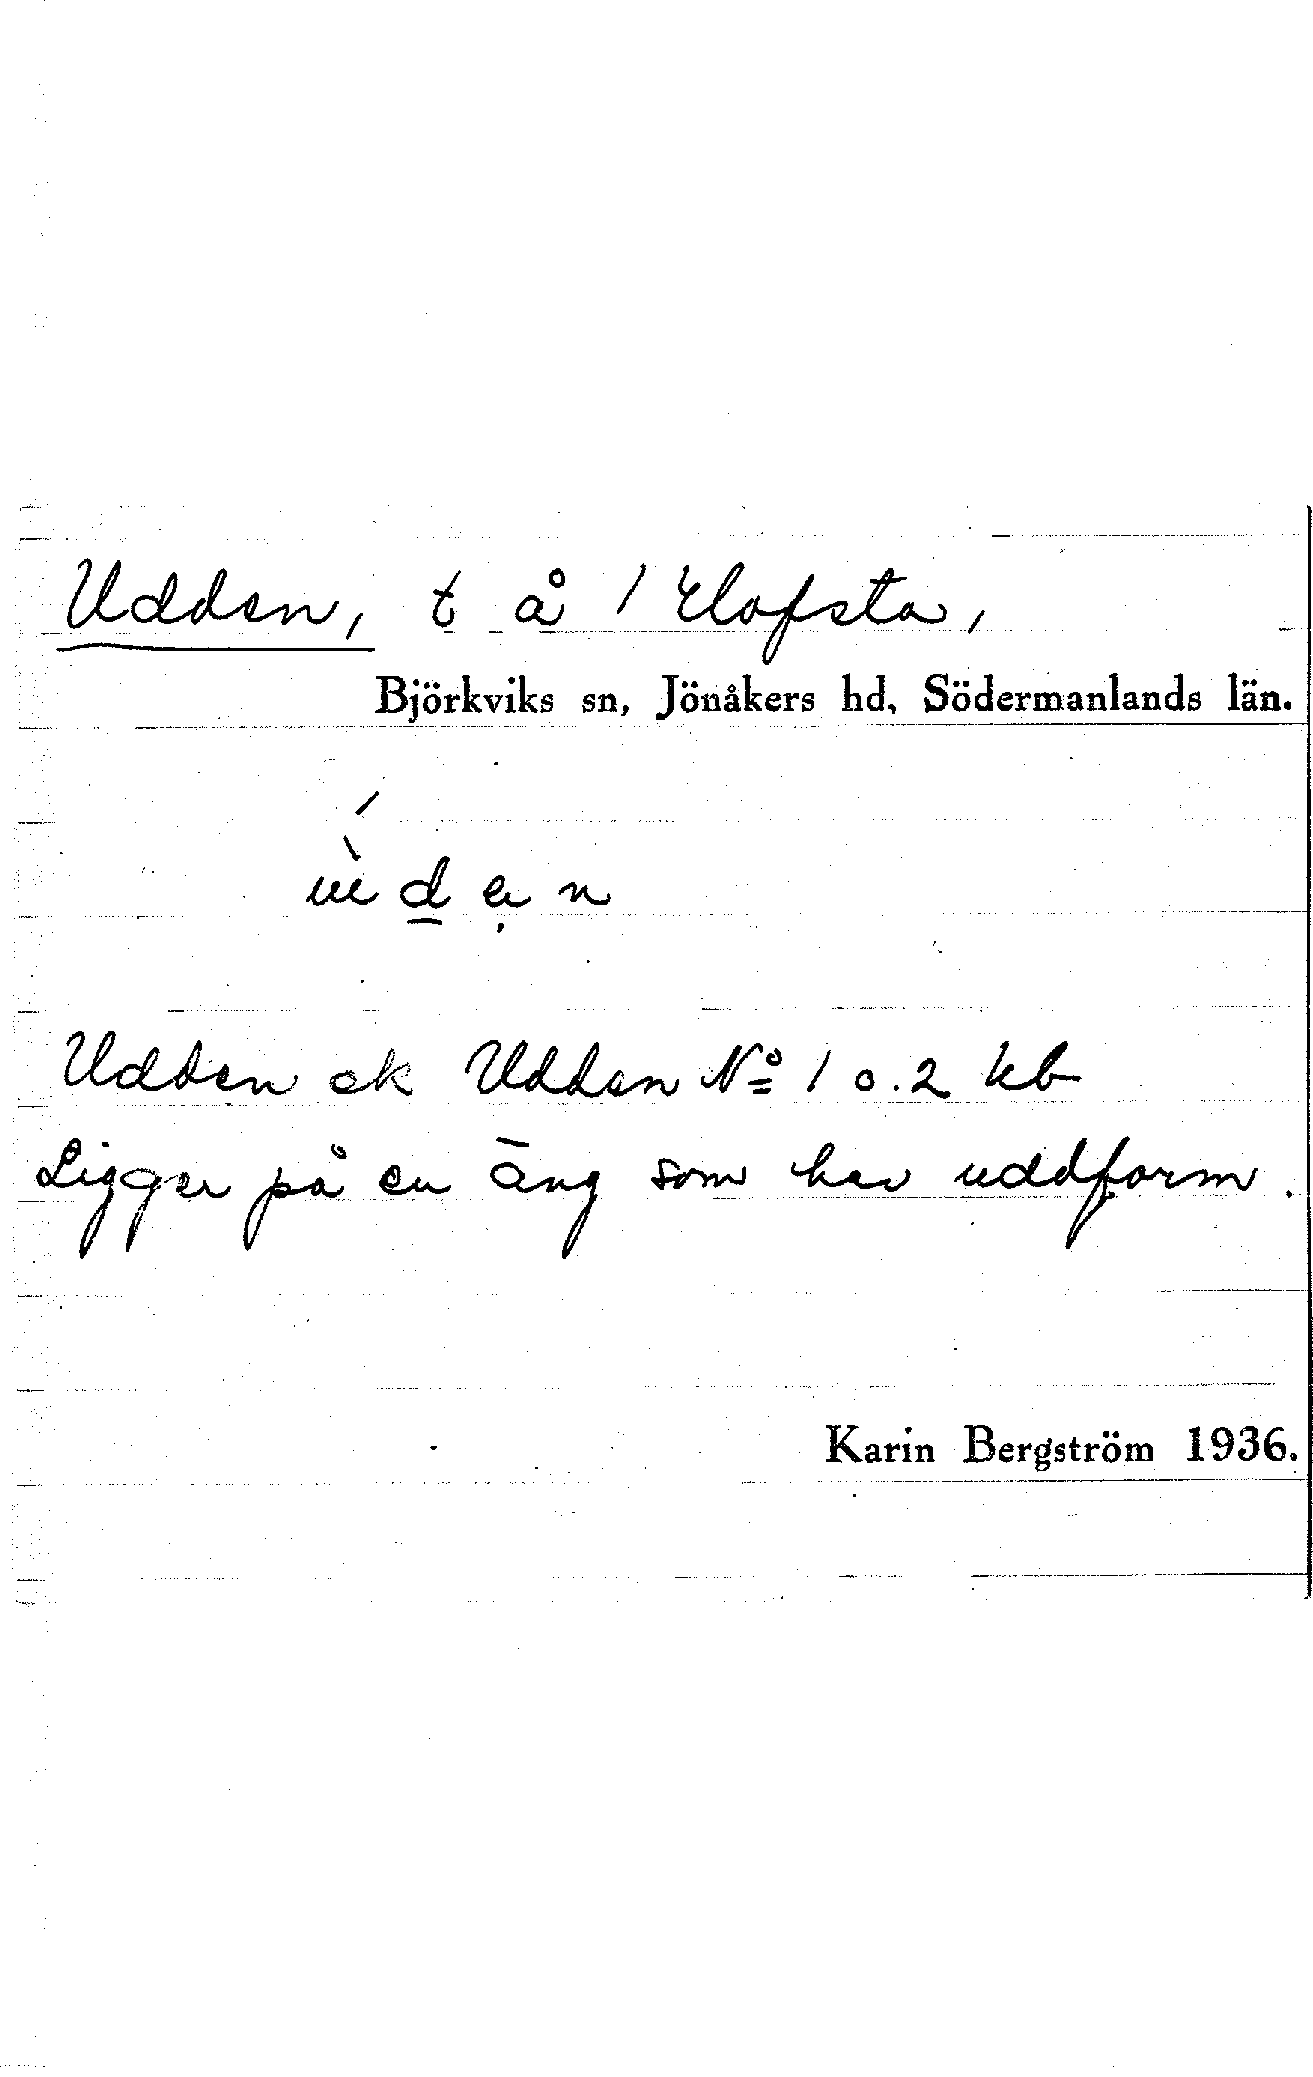 Udden, t å 1 Elofsta,
Björkviks sn, Jönåkers hd, Södermanlands län.
Udden ek Udden № 1 o. 2 kb
Ligger på en äng som har uddform.
Karin Bergström 1936.